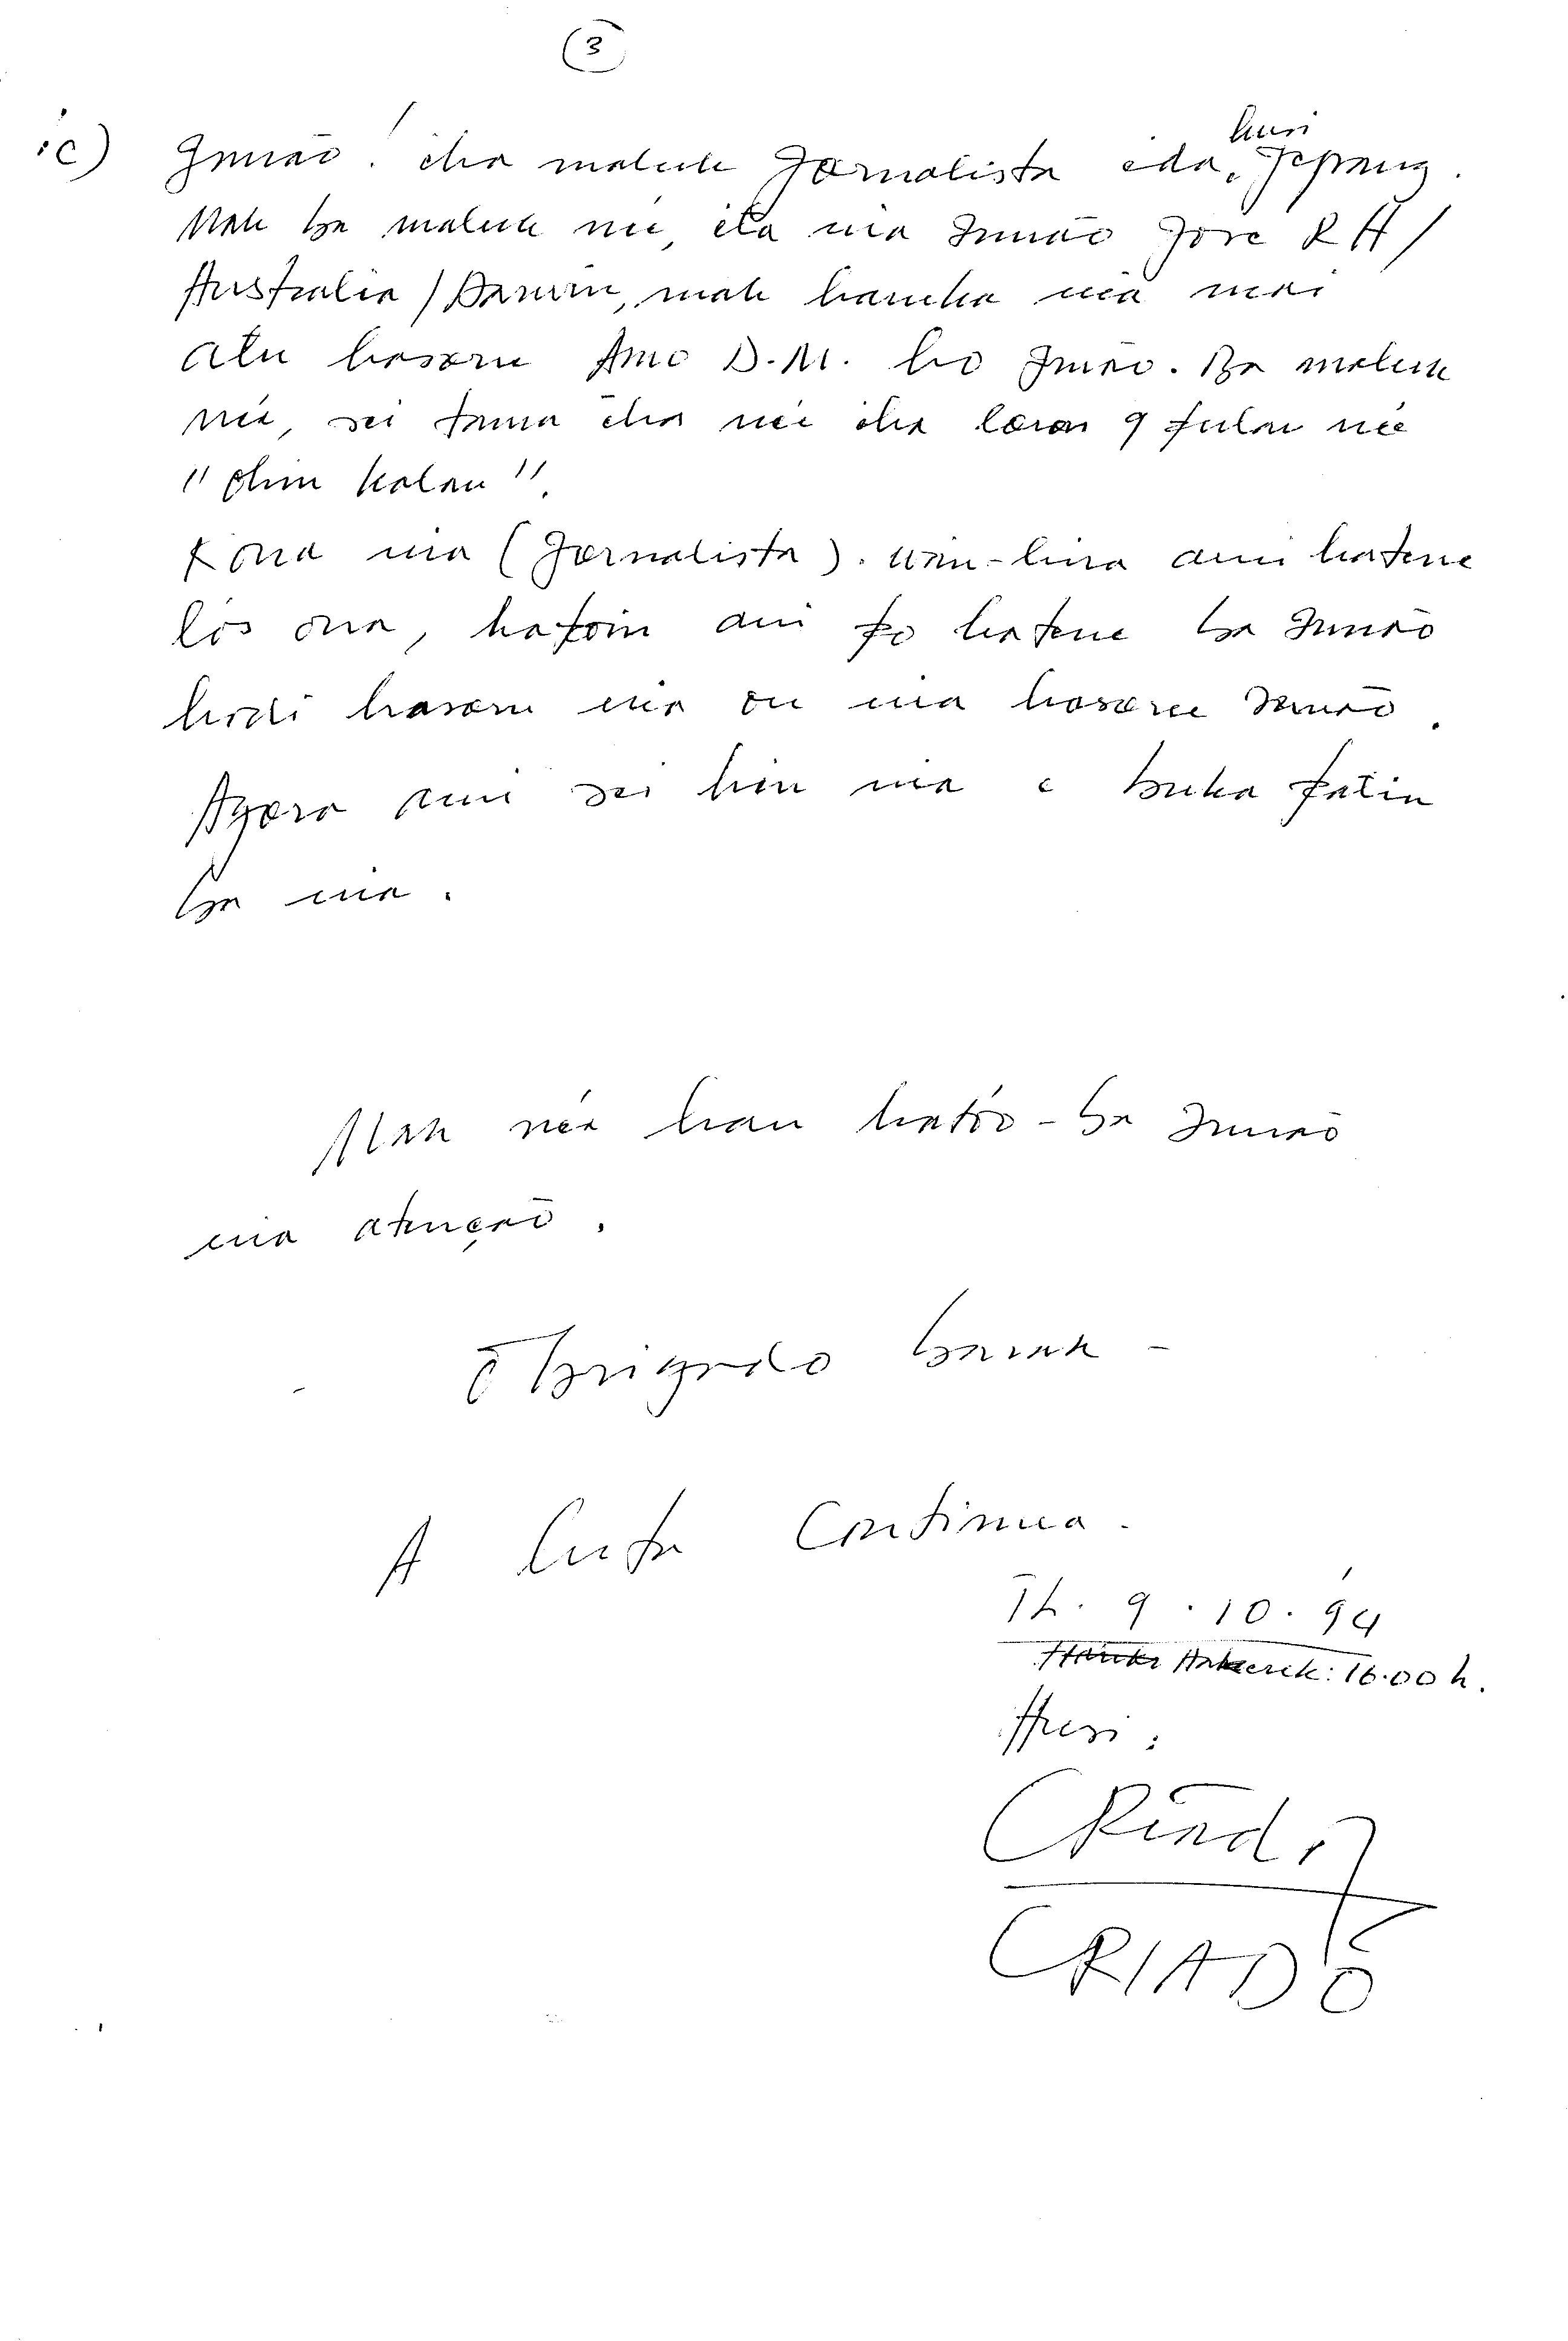 (3)
c) Irmão! iha maluk Jornalista ida, husi Jepang.
Mak ba maluk né, ita nia Irmão Jose R H/
Australia / Darwin, mak haruka nia mai
atu hasoru Amo D.M. ho Irmão. Ba maluk
né, sei tama iha né iha loron 9 fulan né
"Ohin kalan".
Kona nia (Jornalista). wain-hira ami hatene
los ona, hafoin ami fo hatene ba Irmão
hodi hasoru nia ou nia hasoru Irmão.
Agora ami sei hein nia e buka fatin
ba nia.
Mak néé hau hato'o - ba Irmão
nia atenção.
Obrigado barak -
A luta Continua.
TL. 9.10.94
Hakerek: 16.00 h.
Husi:
CRIADO